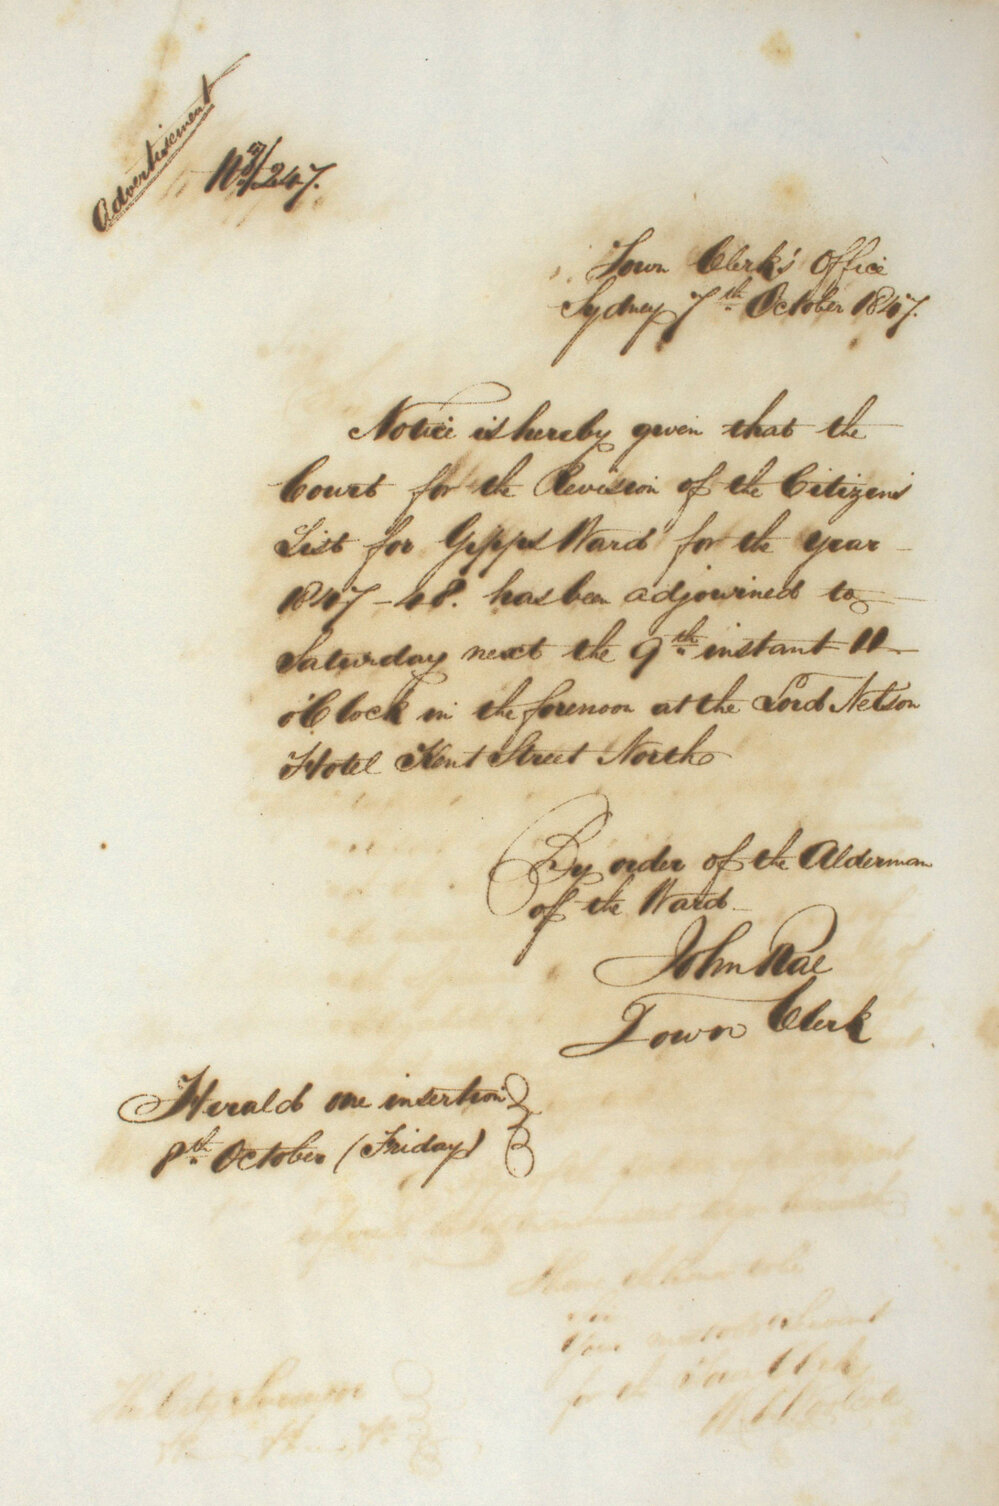 Advertisement
Town Clerk's Office
Sydney 7th October 1847.
Notice is hereby given that the
Court for the Revision of the Citizens
List for Gipps Ward for the year
1847-48. has been adjourned to
Saturday next the 9th instant 11
o'Clock in the forenoon at the Lord Nelson
Hotel Kent Street North
By order of the Alderman
of the Ward
John Rae
Town Clerk
Herald one insertion
8th October (Friday)